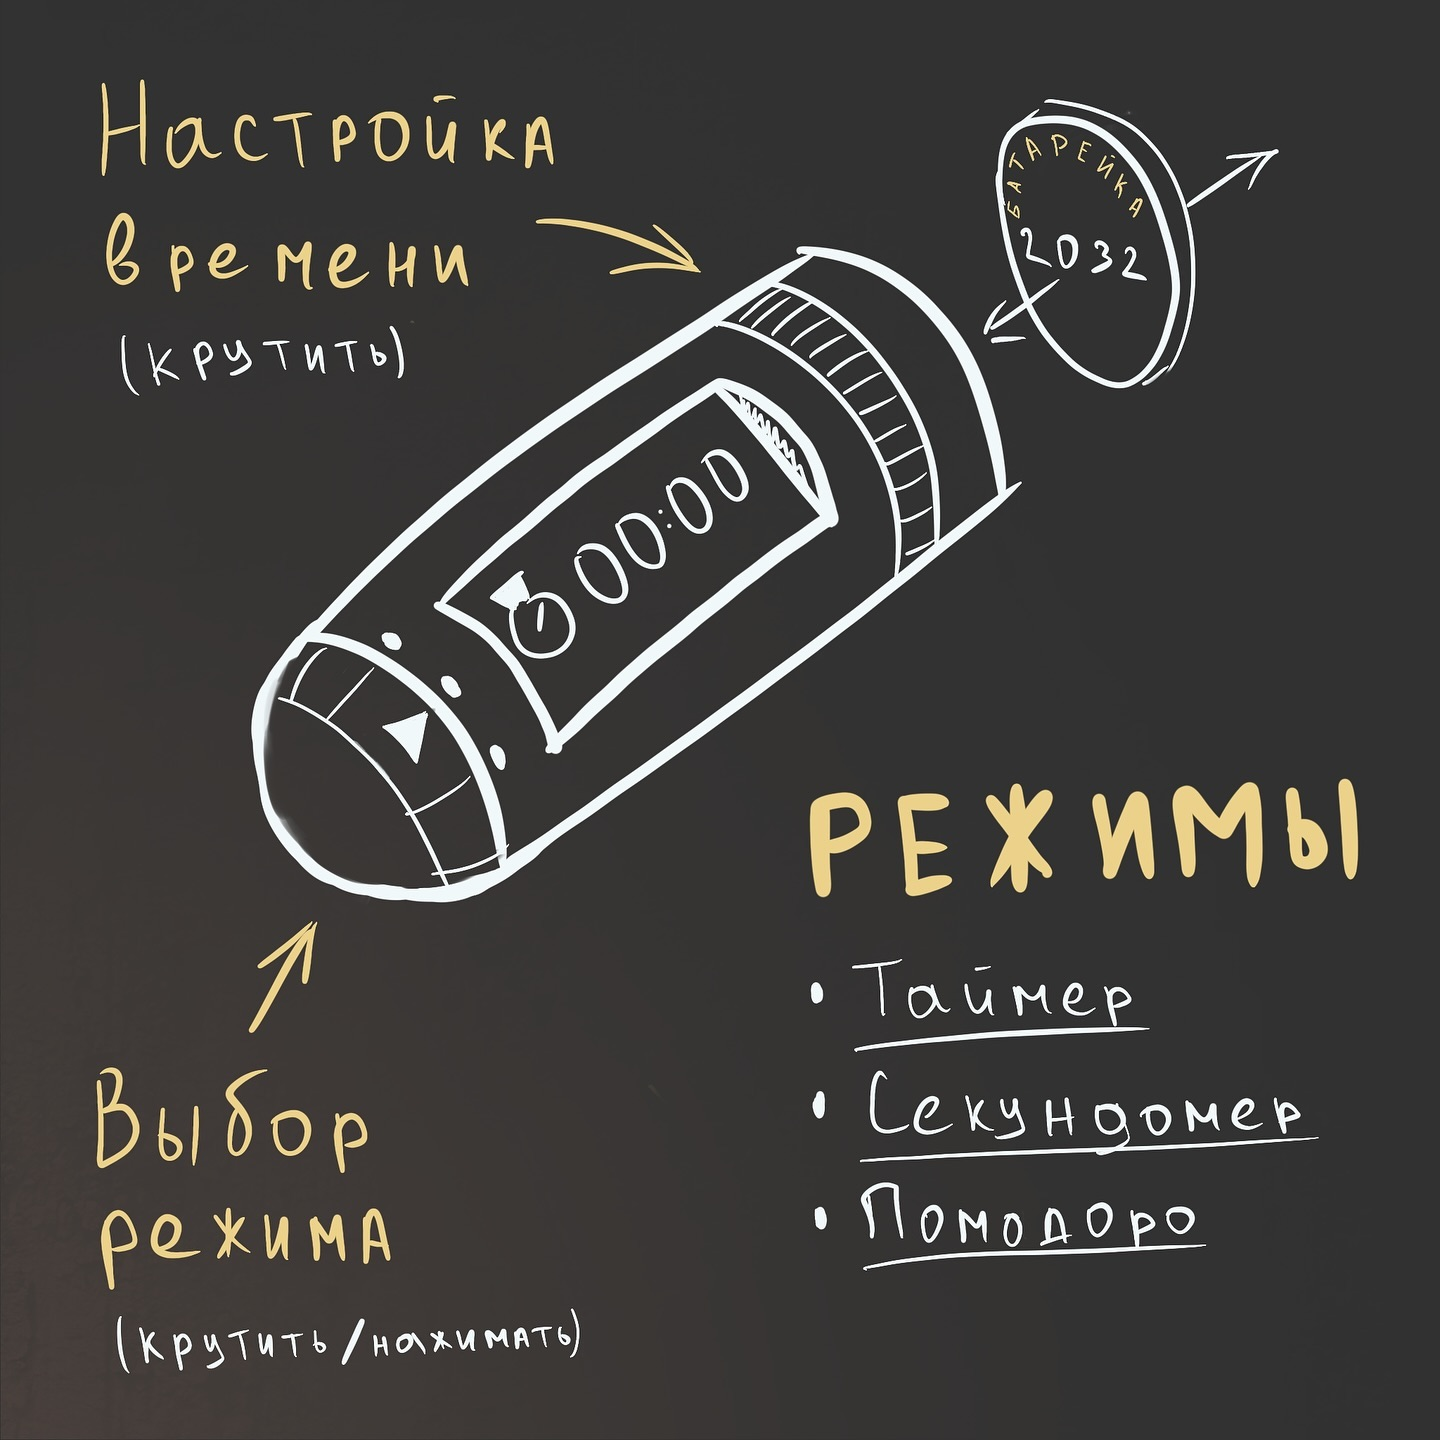 Настройка
времени
(крутить)
БАТАРЕЙКА
2032
00:00
РЕЖИМЫ
• Таймер
• Секундомер
• Помодоро
Выбор
режима
(крутить/нажимать)